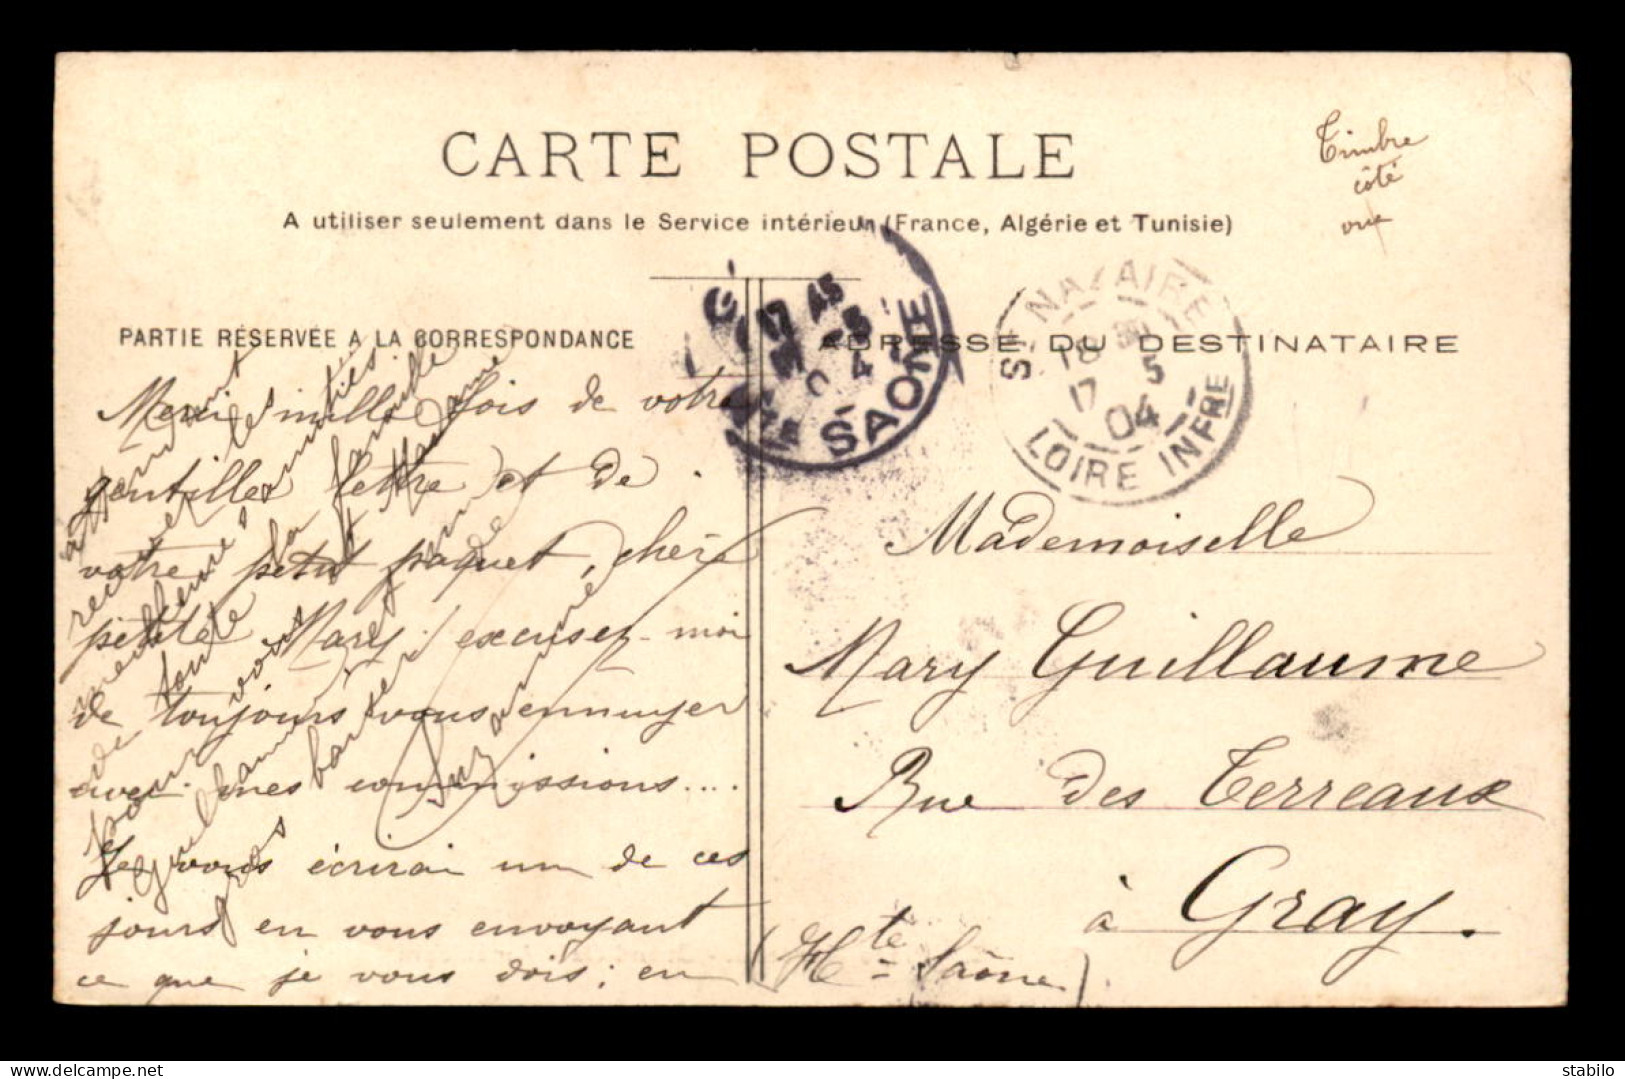 CARTE POSTALE
A utiliser seulement dans le Service intérieur (France, Algérie et Tunisie)
Timbre
côté
vue
PARTIE RÉSERVÉE A LA CORRESPONDANCE
ADRESSE DU DESTINATAIRE
Merci mille fois de votre
gentilles lettre et de
votre petit paquet, chère
petite Mary; excusez-moi
de toujours vous ennuyer
avec mes commissions....
Je vous écrirai un de ces
jours en vous envoyant
ce que je vous dois; en
attendant
recevez les
meilleures amitiés
de toute la famille
pour vous et Madame
Guillaume
gros baisers de
Suzanne
SAONE
17 5
04
ST NAZAIRE
18
17 5
04
LOIRE INFRE
Mademoiselle
Mary Guillaume
Rue des Terreaux
à Gray.
(Hte Saône)
delcampe.net
stabilo